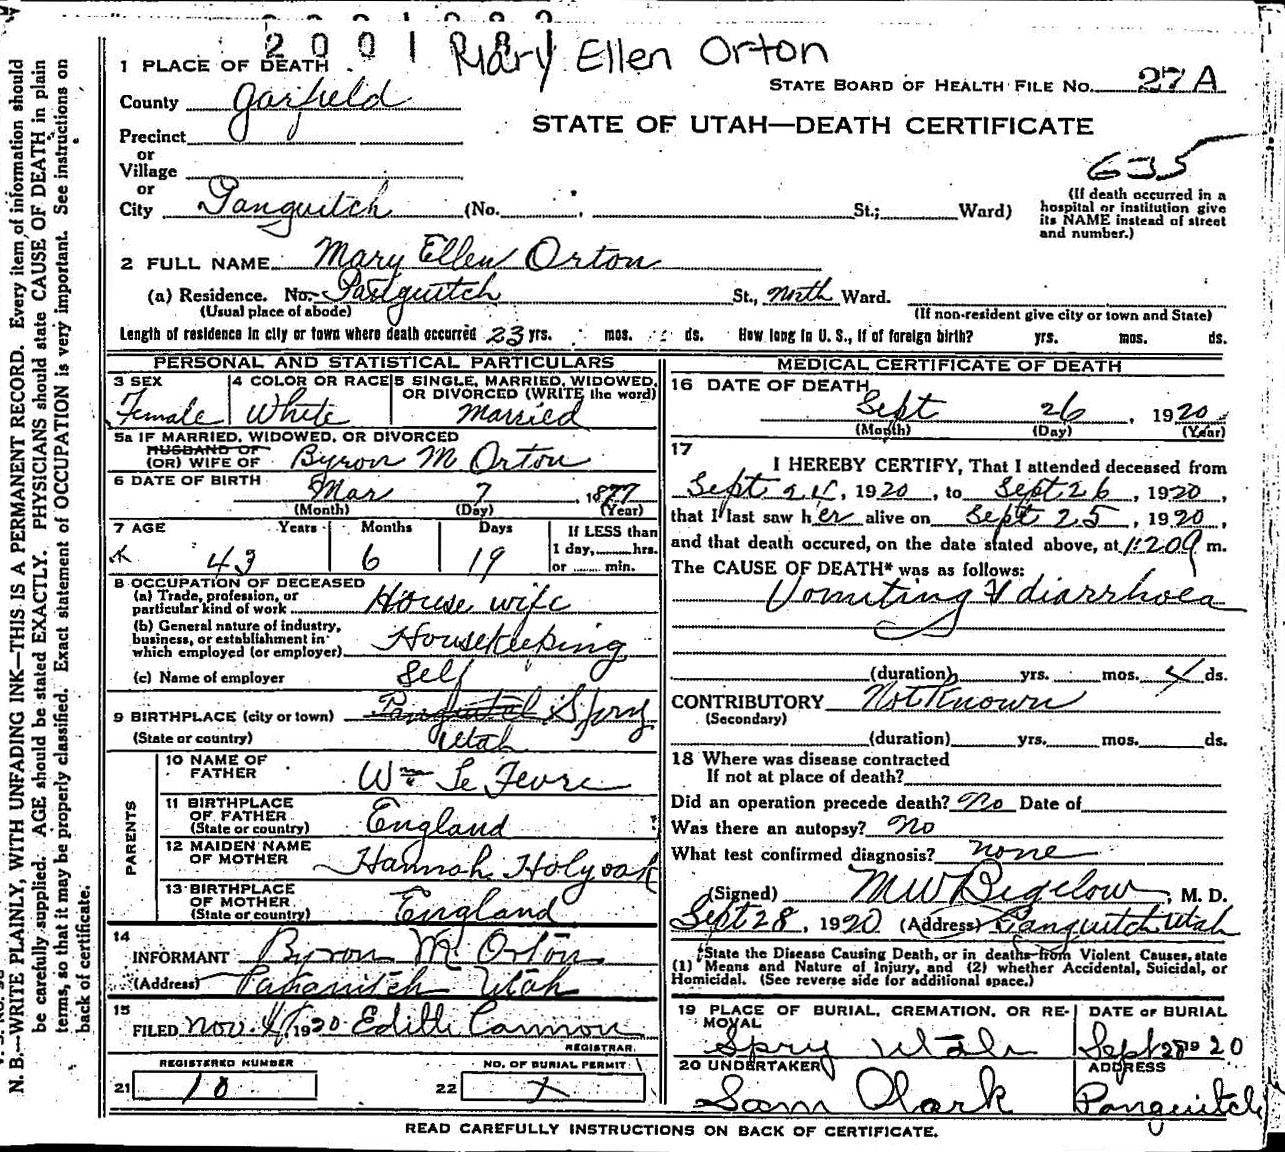 2001881
Mary Ellen Orton
1 PLACE OF DEATH
STATE BOARD OF HEALTH FILE NO. 27A
County Garfield
STATE OF UTAH—DEATH CERTIFICATE
Precinct
or
Village
635
or
(If death occurred in a hospital or institution give its NAME instead of street and number.)
City Panguitch (No. St.; Ward)
2 FULL NAME Mary Ellen Orton
(a) Residence. No. Panguitch St., North Ward.
(Usual place of abode) (If non-resident give city or town and State)
Length of residence in city or town where death occurred 23 yrs. mos. ds. How long in U. S., if of foreign birth? yrs. mos. ds.
PERSONAL AND STATISTICAL PARTICULARS
3 SEX Female
4 COLOR OR RACE White
5 SINGLE, MARRIED, WIDOWED, OR DIVORCED (WRITE the word) Married
5a IF MARRIED, WIDOWED, OR DIVORCED
HUSBAND OF
(OR) WIFE OF Byron M Orton
6 DATE OF BIRTH Mar 7, 1877
(Month) (Day) (Year)
7 AGE Years Months Days If LESS than
43 6 19 1 day, hrs.
or min.
8 OCCUPATION OF DECEASED
(a) Trade, profession, or particular kind of work House wife
(b) General nature of industry, business, or establishment in which employed (or employer) Housekeeping
(c) Name of employer Self
9 BIRTHPLACE (city or town) Panguitch Spry
(State or country) Utah
PARENTS
10 NAME OF FATHER Wm Le Fevre
11 BIRTHPLACE OF FATHER (State or country) England
12 MAIDEN NAME OF MOTHER Hannah Holyoak
13 BIRTHPLACE OF MOTHER (State or country) England
14 INFORMANT Byron M. Orton
(Address) Panguitch Utah
15 FILED Nov. 4, 1920 Edith Cannon
REGISTRAR
REGISTERED NUMBER NO. OF BURIAL PERMIT
21 10 22
MEDICAL CERTIFICATE OF DEATH
16 DATE OF DEATH Sept 26, 1920
(Month) (Day) (Year)
17
I HEREBY CERTIFY, That I attended deceased from
Sept 24, 1920, to Sept 26, 1920,
that I last saw her alive on Sept 25, 1920,
and that death occured, on the date stated above, at m.
The CAUSE OF DEATH* was as follows:
Vomiting & diarrhoea
(duration) yrs. mos. 4 ds.
CONTRIBUTORY Not Known
(Secondary)
(duration) yrs. mos. ds.
18 Where was disease contracted
If not at place of death?
Did an operation precede death? No Date of
Was there an autopsy? No
What test confirmed diagnosis? none
(Signed) M W Bigelow, M. D.
Sept 28, 1920 (Address) Panguitch Utah
*State the Disease Causing Death, or in deaths from Violent Causes, state
(1) Means and Nature of Injury, and (2) whether Accidental, Suicidal, or
Homicidal. (See reverse side for additional space.)
19 PLACE OF BURIAL, CREMATION, OR REMOVAL Spry Utah
DATE OF BURIAL Sept 28 1920
20 UNDERTAKER Sam Clark
ADDRESS Panguitch
READ CAREFULLY INSTRUCTIONS ON BACK OF CERTIFICATE.
N. B.—WRITE PLAINLY, WITH UNFADING INK—THIS IS A PERMANENT RECORD. Every item of information should
be carefully supplied. AGE should be stated EXACTLY. PHYSICIANS should state CAUSE OF DEATH in plain
terms, so that it may be properly classified. Exact statement of OCCUPATION is very important. See instructions on
back of certificate.